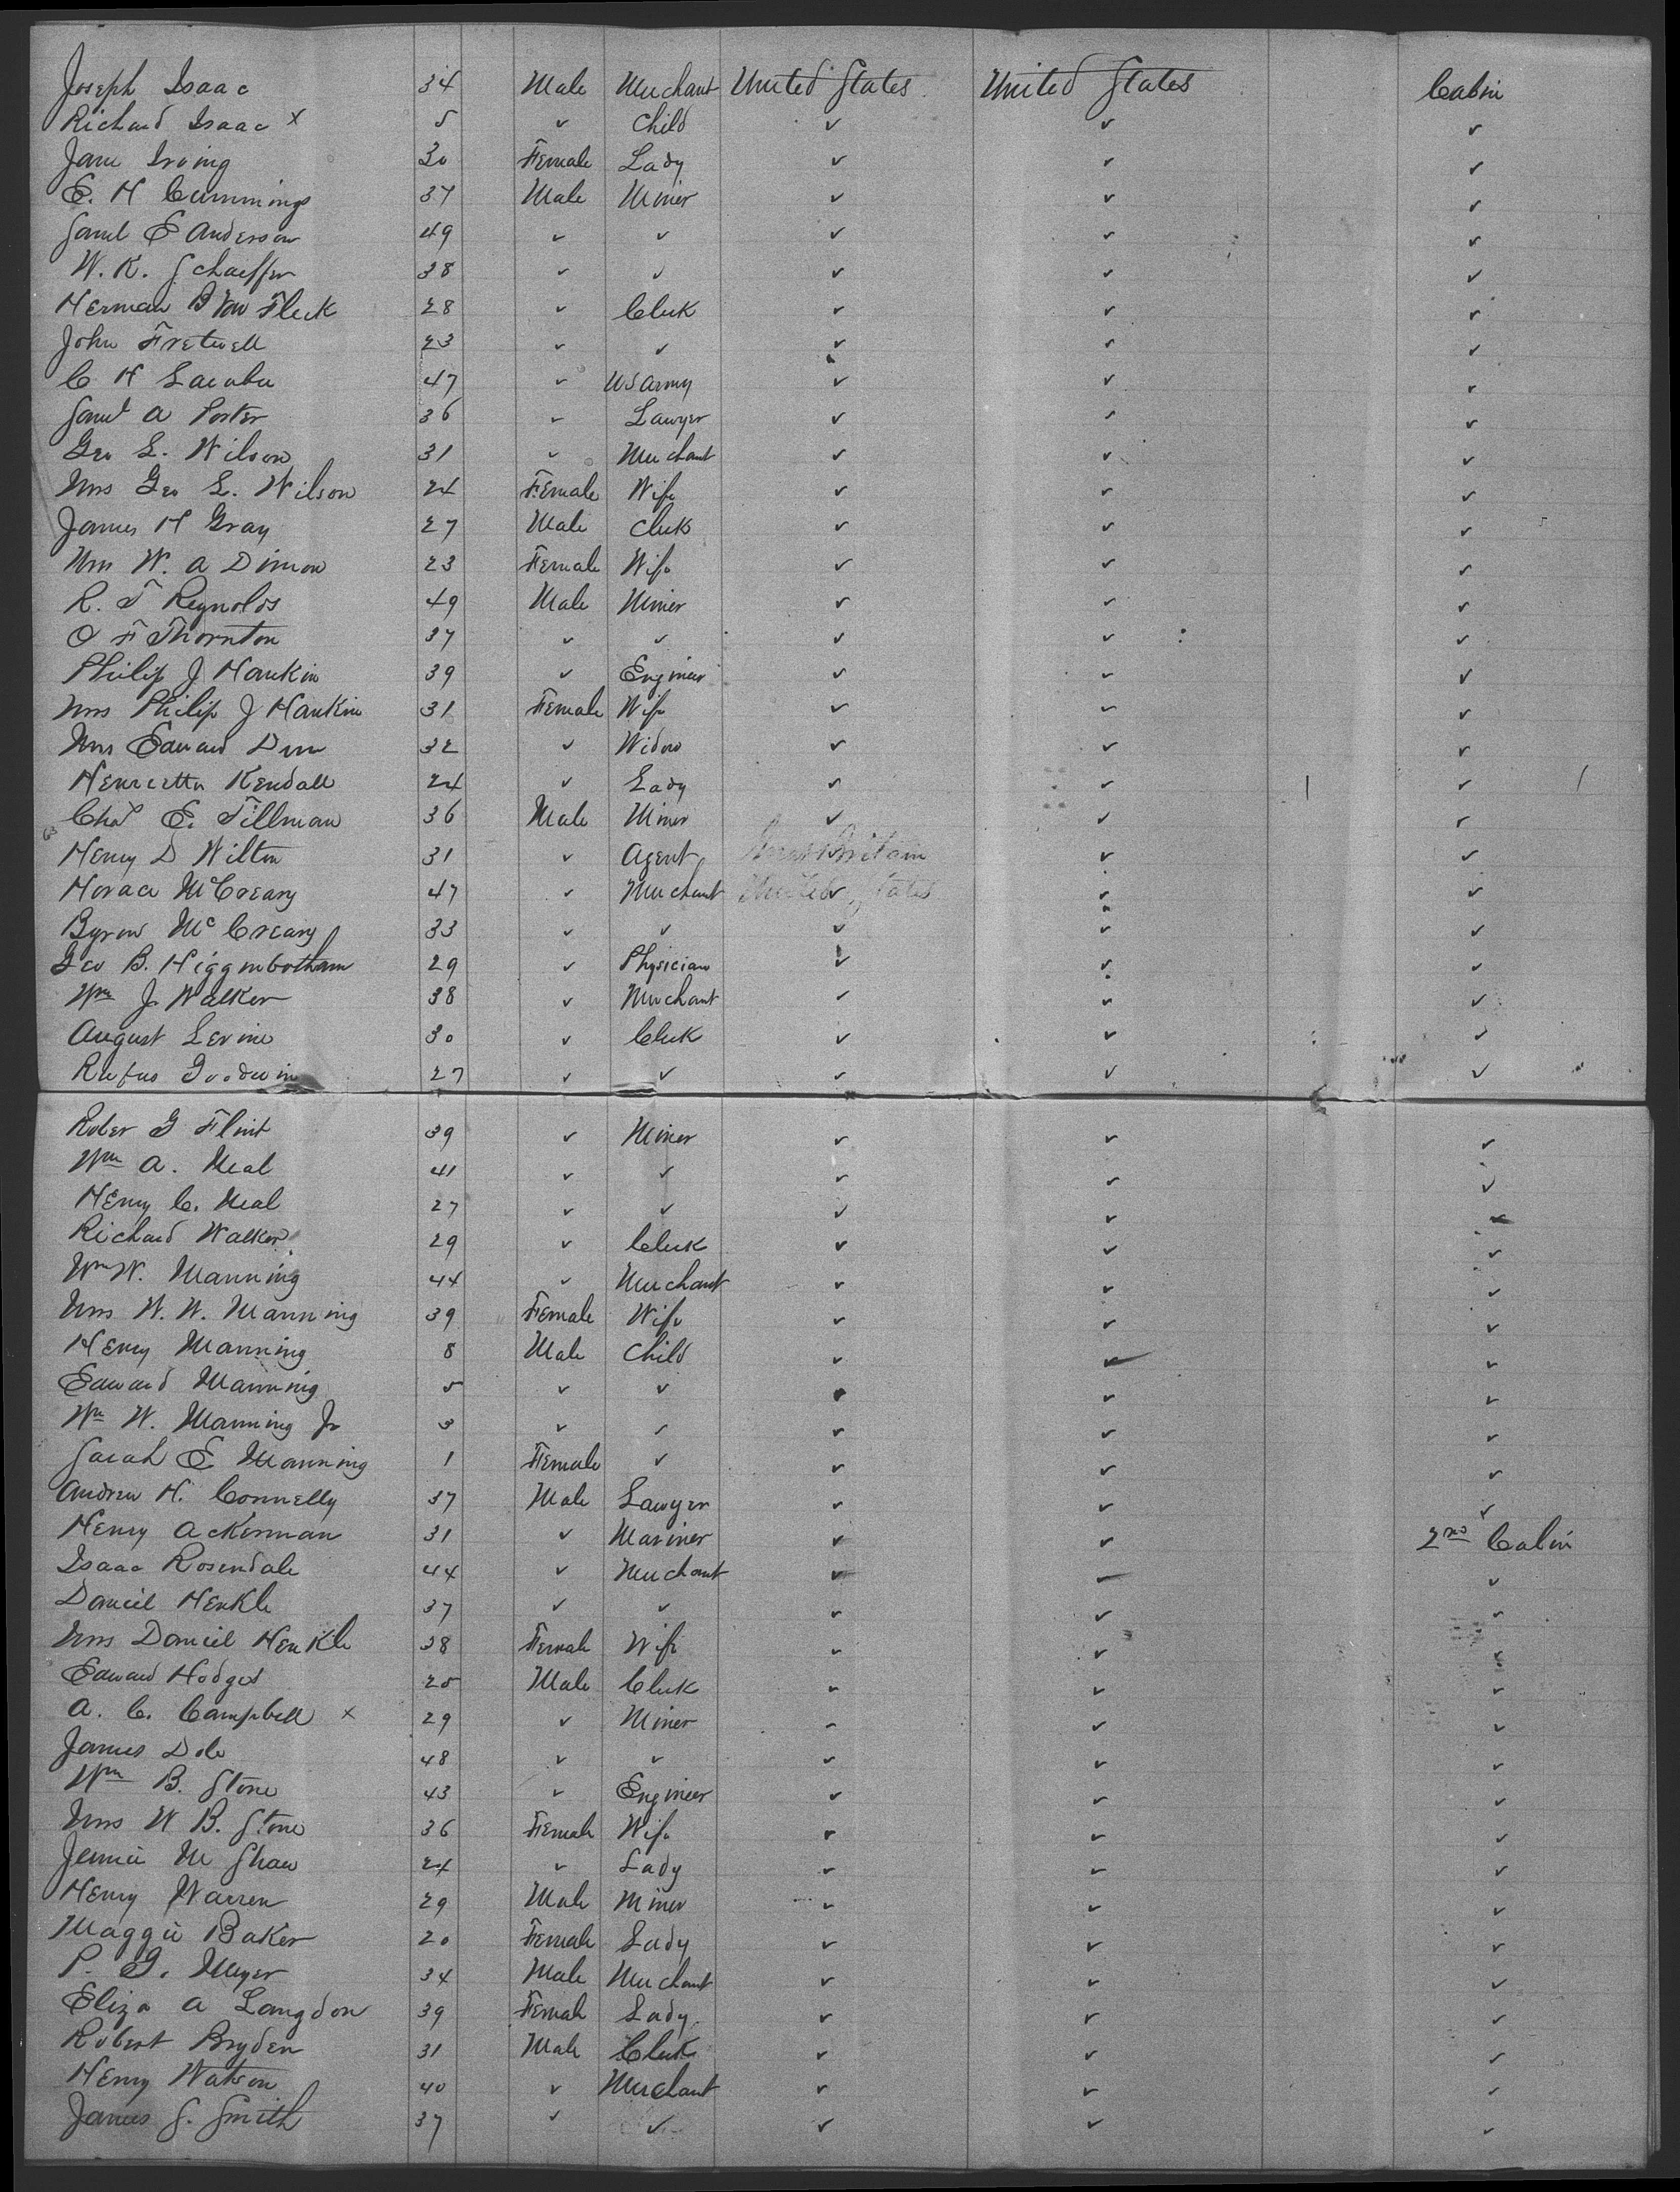 Joseph Isaac 34 Male Merchant United States United States Cabin
Richard Isaac x 5 ✓ Child ✓ ✓ ✓
Jane Irving 30 Female Lady ✓ ✓ ✓
E. H Cummings 37 Male Miner ✓ ✓ ✓
Saml E Anderson 49 ✓ ✓ ✓ ✓ ✓
W. K. Schaeffer 38 ✓ ✓ ✓ ✓ ✓
Herman B Von Fleck 28 ✓ Clerk ✓ ✓ ✓
John Fretwell 23 ✓ ✓ ✓ ✓ ✓
C H 47 ✓ US Army ✓ ✓ ✓
Saml A Porter 36 ✓ Lawyer ✓ ✓ ✓
Geo L. Wilson 31 ✓ Merchant ✓ ✓ ✓
Mrs Geo L. Wilson 24 Female Wife ✓ ✓ ✓
James H Gray 27 Male Clerk ✓ ✓ ✓
Mrs W. A Dimon 23 Female Wife ✓ ✓ ✓
R. T Reynolds 49 Male Miner ✓ ✓ ✓
O F Thornton 37 ✓ ✓ ✓ ✓ ✓
Philip J Hankin 39 ✓ Engineer ✓ ✓ ✓
Mrs Philip J Hankin 31 Female Wife ✓ ✓ ✓
Mrs Edward 32 ✓ Widow ✓ ✓ ✓
Henrietta Kendall 24 ✓ Lady ✓ ✓ ✓
Chas E. Tillman 36 Male Miner ✓ ✓ ✓
Henry D Wilton 31 ✓ Agent Great Britain ✓ ✓
Horace McCreary 47 ✓ Merchant United States ✓ ✓
Byron McCreary 33 ✓ ✓ ✓ ✓ ✓
Geo B. Higginbotham 29 ✓ Physician ✓ ✓ ✓
Wm J. Walker 38 ✓ Merchant ✓ ✓ ✓
August Levine 30 ✓ Clerk ✓ ✓ ✓
Rufus Goodwin 27 ✓ ✓ ✓ ✓ ✓
Rober G Flint 39 ✓ Miner ✓ ✓ ✓
Wm A. Neal 41 ✓ ✓ ✓ ✓ ✓
Henry C. Neal 27 ✓ ✓ ✓ ✓ ✓
Richard Walker 29 ✓ Clerk ✓ ✓ ✓
Wm W. Manning 44 ✓ Merchant ✓ ✓ ✓
Mrs W. W. Manning 39 Female Wife ✓ ✓ ✓
Henry Manning 8 Male Child ✓ ✓ ✓
Edward Manning 5 ✓ ✓ ✓ ✓ ✓
Wm W. Manning Jr 3 ✓ ✓ ✓ ✓ ✓
Sarah E Manning 1 Female ✓ ✓ ✓ ✓
Andrew H. Connelly 37 Male Lawyer ✓ ✓ ✓
Henry Ackerman 31 ✓ Mariner ✓ ✓ 2nd Cabin
Isaac Rosendale 44 ✓ Merchant ✓ ✓ ✓
Daniel Henkle 37 ✓ ✓ ✓ ✓ ✓
Mrs Daniel Henkle 38 Female Wife ✓ ✓ ✓
Edward Hodges 25 Male Clerk ✓ ✓ ✓
A. C. Campbell x 29 ✓ Miner ✓ ✓ ✓
James Dole 48 ✓ ✓ ✓ ✓ ✓
Wm B. Stone 43 ✓ Engineer ✓ ✓ ✓
Mrs W B. Stone 36 Female Wife ✓ ✓ ✓
Jennie M Shaw 24 ✓ Lady ✓ ✓ ✓
Henry Warren 29 Male Miner ✓ ✓ ✓
Maggie Baker 20 Female Lady ✓ ✓ ✓
P. G. Meyer 34 Male Merchant ✓ ✓ ✓
Eliza A Langdon 39 Female Lady ✓ ✓ ✓
Robert Bryden 31 Male Clerk ✓ ✓ ✓
Henry Watson 40 ✓ Merchant ✓ ✓ ✓
James S. Smith 37 ✓ ✓ ✓ ✓ ✓